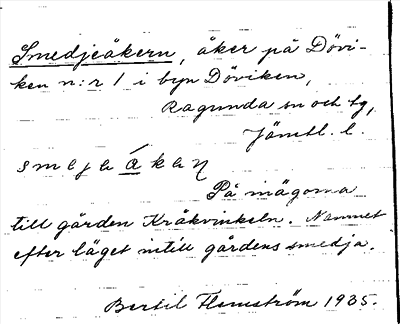 Smedjeåkern, åker på Dövi-
ken n:r 1 i byn Döviken,
Ragunda sn och tg,
Jämtl. l.
På inägorna
till gården Kråkvinkeln. Namnet
efter läget intill gårdens smedja.
Bertil Flemström 1935.